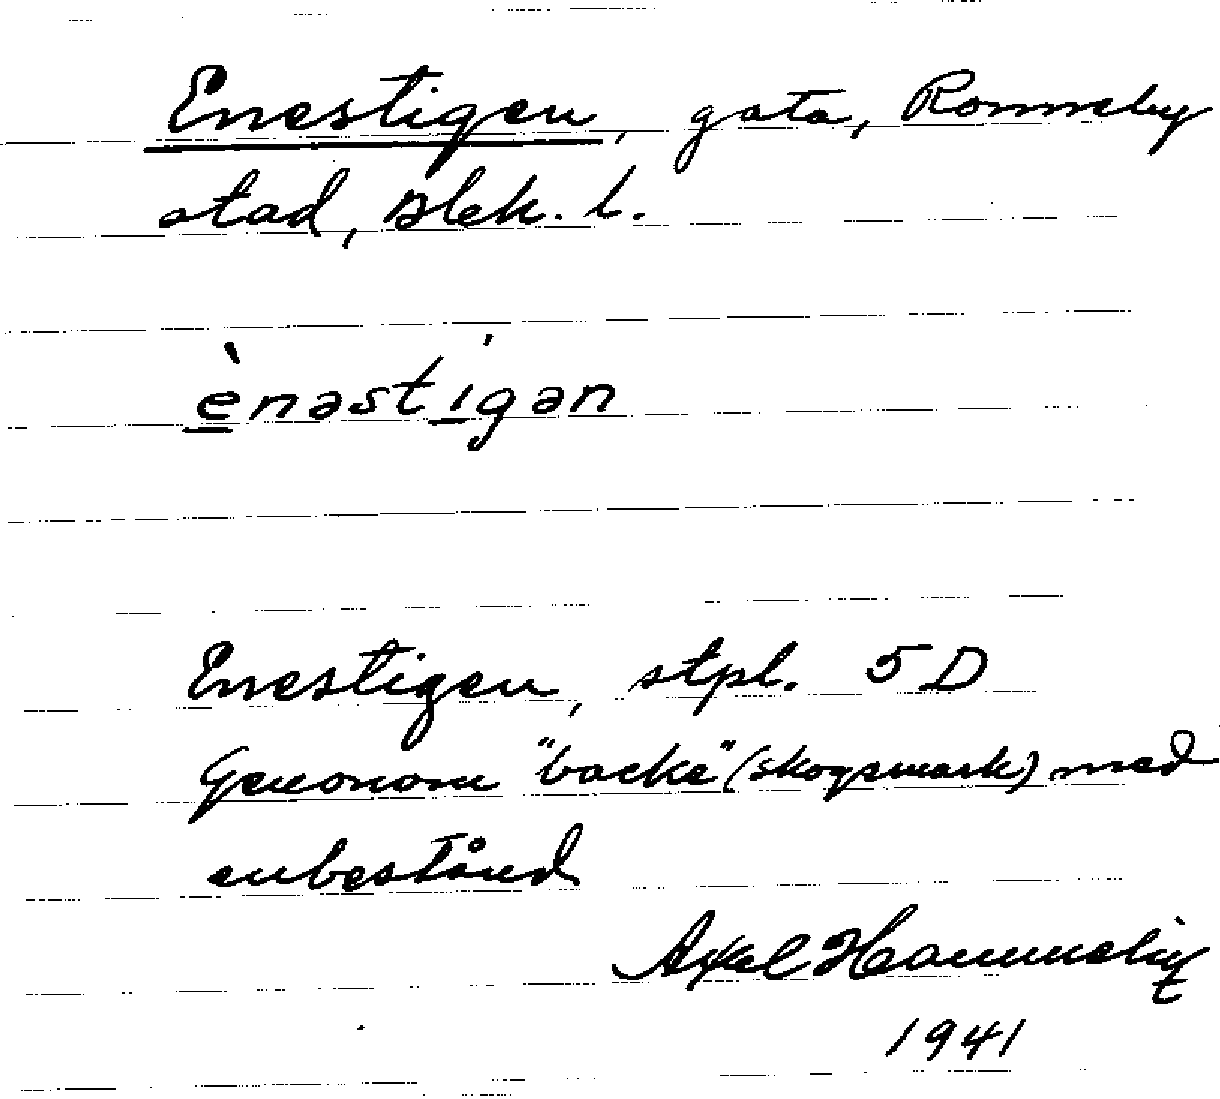 Enestigen, gata, Ronneby
stad, Blek. l.
ènəstigən
Enestigen, stpl. 5 D
Genonom "backe" (skogsmark) med
enbestånd
Axel
1941